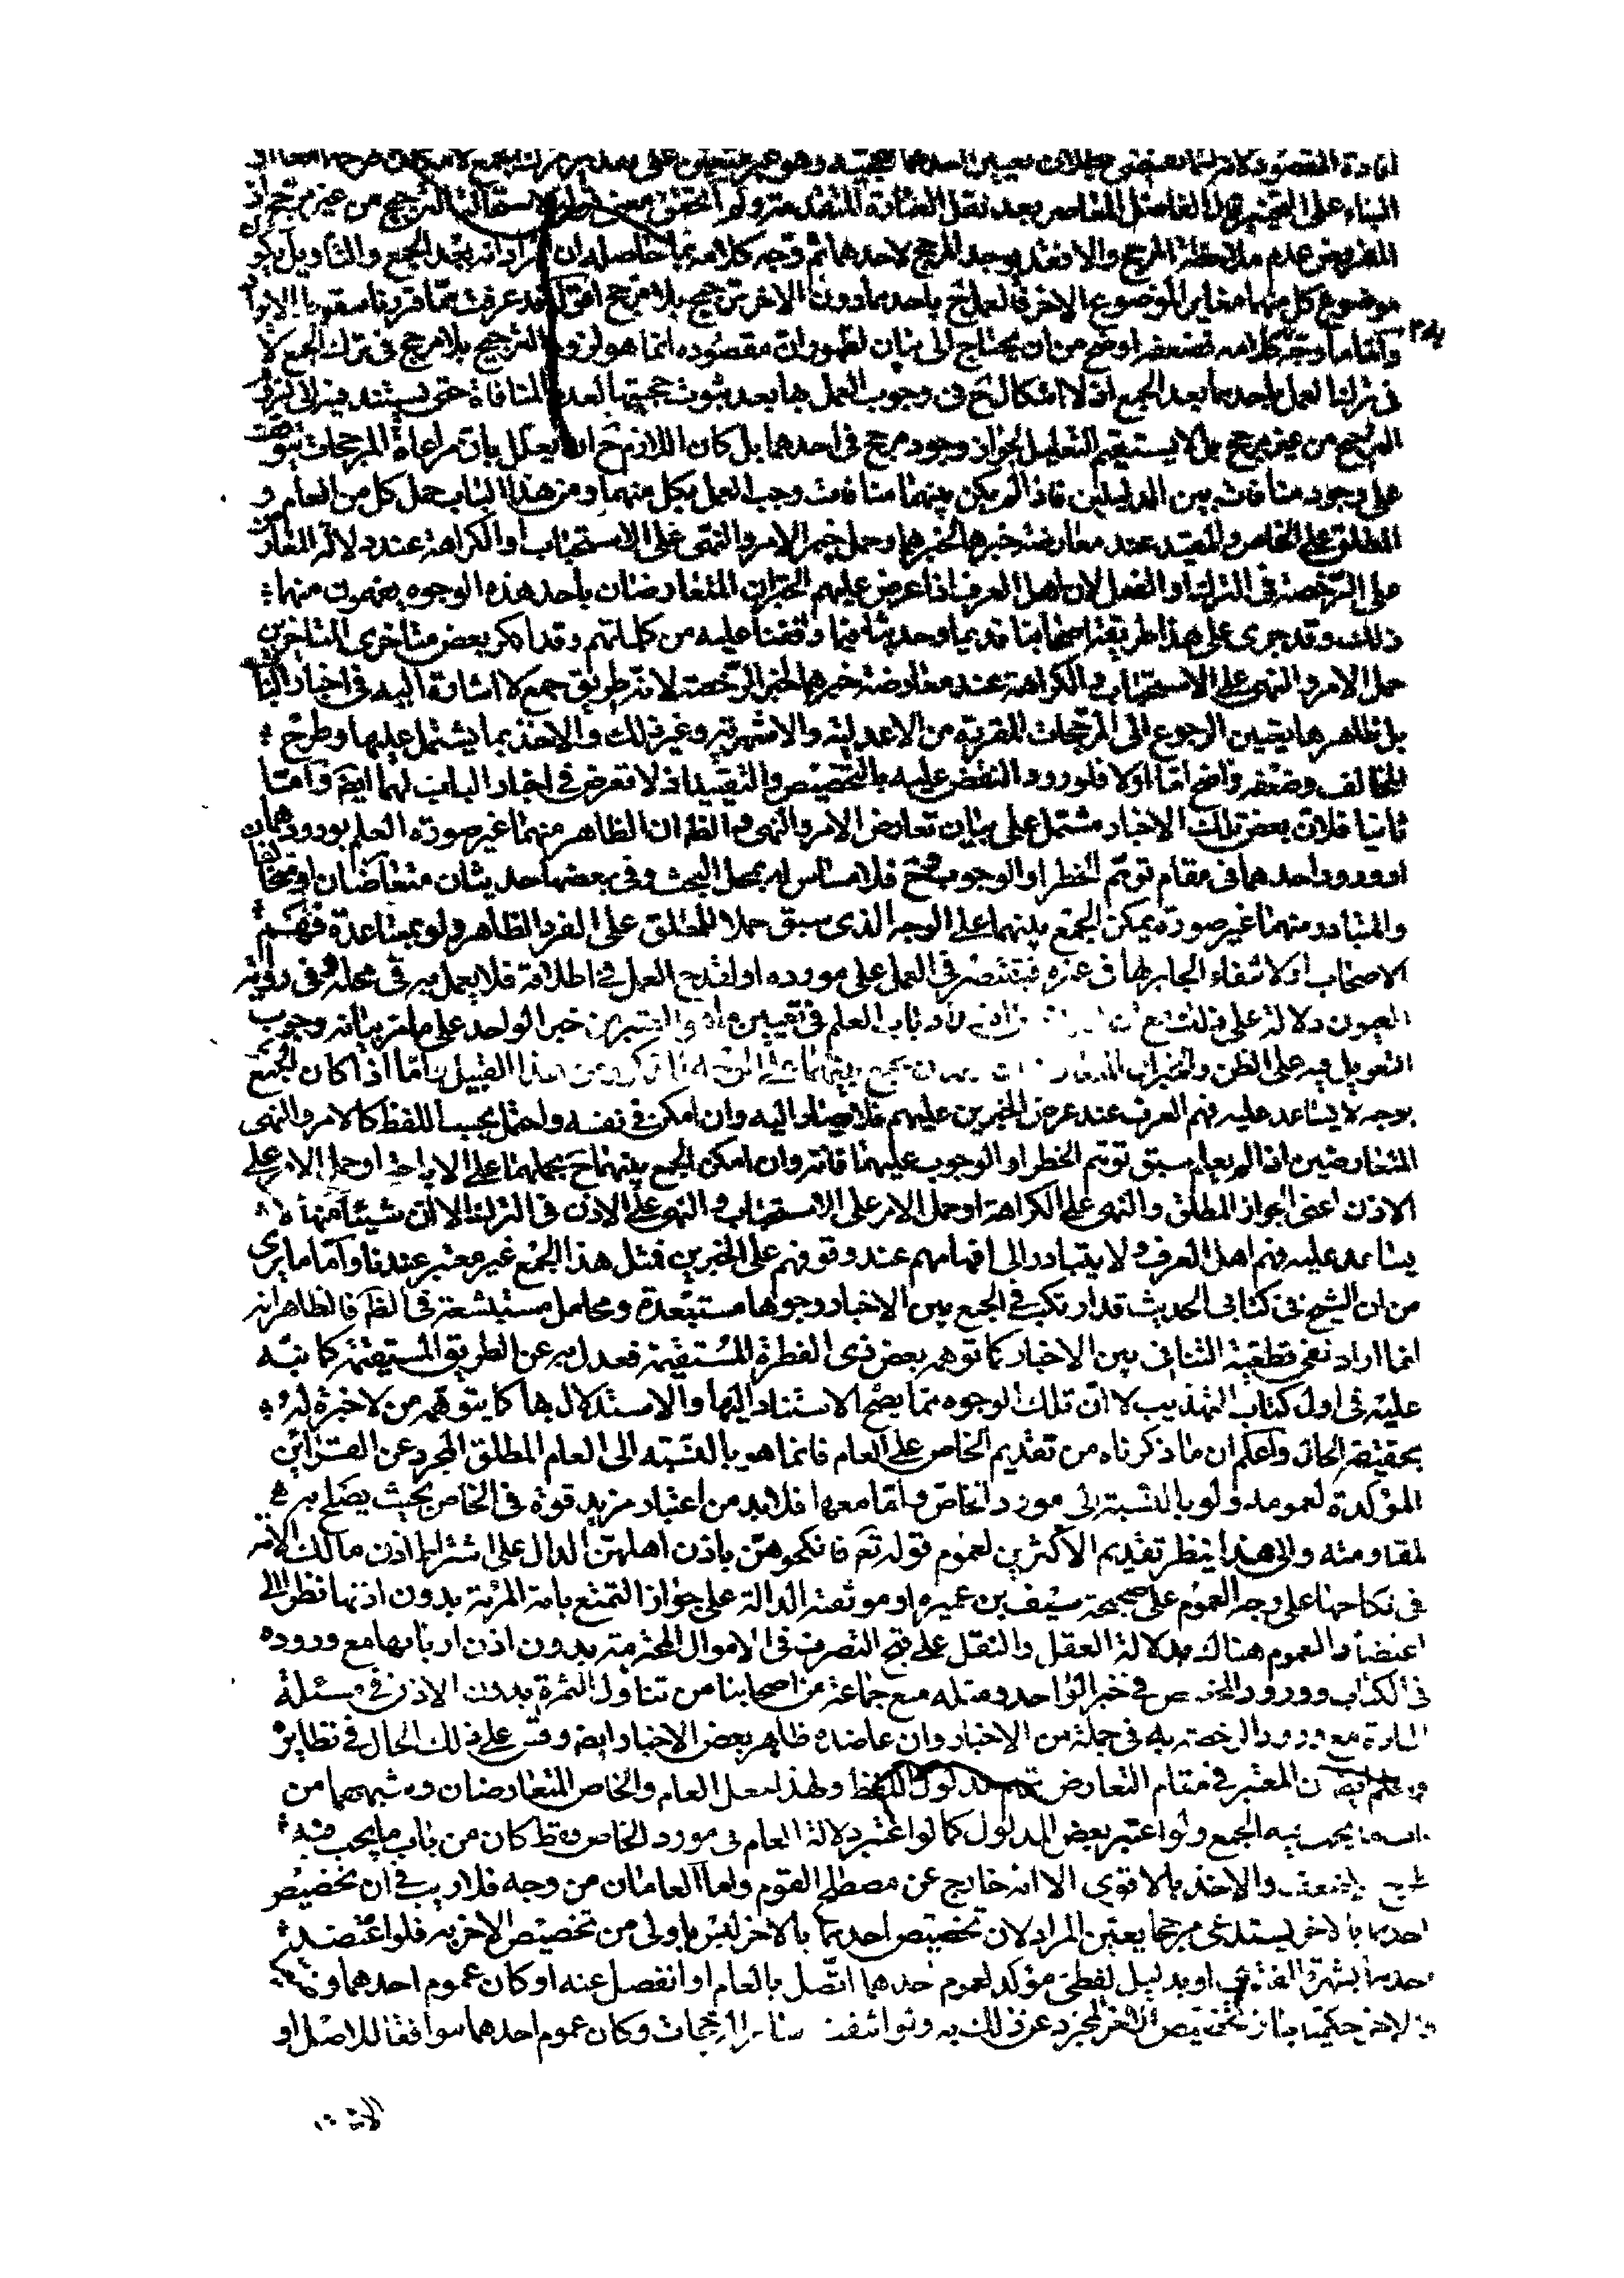 البناء على التخيير ثم ان الفاضل المعاصر بعد نقل العبارة المتقدمة ولو لم يتحقق استحالة الترجيح من غير مرجح اذ
المفروض عدم ملاحظة المرجح والا فقد يوجد المرجح لاحدهما ثم وجه كلامه بما حاصله ان المراد انه بعد الجمع والتاويل يكون
موضوع كل منهما مغاير الموضوع الاخر فالعمل ح باحدهما دون الاخر ترجيح بلا مرجح اقول قد عرفت مما قررنا سقوط الايراد
واما ما وجه به كلامه فضعفه اوضح من ان يحتاج الى بيان لظهور ان مقصوده انما هو لزوم الترجيح بلا مرجح فى ترك الجمع لا
فى ترك العمل باحدهما بعد الجمع اذ لا اشكال ح فى وجوب العمل بها بعد ثبوت حجيتها لعدم المنافاة حتى يستند فيه الى لزوم
الترجيح من غير مرجح بل لا يستقيم التعليل لجواز وجود مرجح فى احدهما بل كان اللازم ح ان يعلل بان مراعاة المرجحات يتوقف
على وجود منافات بين الدليلين فاذا لم يكن بينهما منافات وجب العمل بكل منهما ومن هذا الباب حمل كل من العام و
المطلق على الخاص والمقيد عند معارضة خبرها لخبرهما وحمل خبر الامر والنهى على الاستحباب او الكراهة عند دلالة المعارض
على الرخصة فى الترك او الفعل لان اهل العرف اذا عرض عليهم الخبران المتعارضان باحد هذه الوجوه يفهمون منها
ذلك وقد جرى على هذا طريقة اصحابنا قديما وحديثا فيما وقفنا عليه من كلماتهم وقد انكر بعض متاخرى المتاخرين
حمل الامر والنهى على الاستحباب والكراهة عند معارضة خبرهما لخبر الرخصة لانه طريق جمع لا اشارة اليه فى اخبار الباب
بل ظاهرها يتعين الرجوع الى المرجحات المقررة من الاعدلية والاشهرية وغير ذلك والاخذ بما يشتمل عليها وطرح
المخالف وضعفه واضح اما اولا فلورود النقض عليه بالتخصيص والتقييد اذ لا تعرض فى اخبار الباب لهما ايض واما
ثانيا فلان بعض تلك الاخبار مشتمل على بيان تعارض الامر والنهى والظ ان الظاهر منهما غير صورة العلم بورودهما
او ورود احدهما فى مقام توهم الحظر او الوجوب وح فلا مساس له بمحل البحث وفى بعضها حديثان متعارضان او مختلفان
والمتبادر منهما غير صورة يمكن الجمع بينهما على الوجه الذى سبق حملا للمطلق على الفرد الظاهر ولو بمساعدة فهم
الاصحاب او لانتفاء الجابر لها فى غيره فيقتصر فى العمل على مورده او لقدح العمل فى اطلاقه فلا يعمل به فى محله وفى رواية
العيون دلالة على ذلك
التعويل فيه على الظن والخبران هذا القبيل واما اذا كان الجمع
بوجه لا يساعد عليه فهم العرف عند عرض الخبرين عليهم فلا يصار اليه وان امكن فى نفسه واحتمل بحسب اللفظ كالامر والنهى
المتعارضين اذا لم يعلم سبق توهم الحظر او الوجوب عليهما فانه وان امكن الجمع بينهما ح بحملهما على الاباحة او حمل الامر على
الاذن اعنى الجواز المطلق والنهى على الكراهة او حمل الامر على الاستحباب والنهى على الاذن فى الترك الا ان شيئا منها لا
يساعد عليه فهم اهل العرف ولا يتبادر الى افهامهم عند وقوفهم على الخبرين فمثل هذا الجمع غير معتبر عندنا واما ما يرى
من ان الشيخ فى كتابى الحديث قد ارتكب فى الجمع بين الاخبار وجوها مستبعدة ومحامل مستبشعة فى الظ فالظاهر انه
انما اراد نفى قطعية التنافى بين الاخبار كما توهمه بعض ذوى الفطرة المستقيمة فعدل به عن الطريق المستقيمة كما نبه
عليه فى اول كتاب التهذيب لا ان تلك الوجوه مما يصح الاستناد اليها والاستدلال بها كما يتوهمه من لا خبرة له
بحقيقة الحال واعلم ان ما ذكرناه من تقديم الخاص على العام فانما هو بالنسبة الى العام المطلق المجرد عن القرائن
المؤكدة لعمومه ولو بالنسبة الى مورد الخاص واما معها فلا بد من اعتبار مزيد قوة فى الخاص بحيث يصلح به
لمقاومته والى هذا ينظر تقديم الاكثرين لعموم قوله تع فانكحوهن باذن اهلهن الدال على اشتراط اذن مالك الامة
فى نكاحها على وجه العموم على صحيحة سيف بن عميرة او موثقته الدالة على جواز التمتع بامة المرئة بدون اذنها نظرا الى
اعتضاد العموم هناك بدلالة العقل والنقل على قبح التصرف فى الاموال المحترمة بدون اذن اربابها مع وروده
فى الكتاب وورود المخصص فى خبر الواحد ومثله منع جماعة من اصحابنا من تناول الثمرة بدون الاذن فى مسئلة
المارة مع ورود الرخصة به فى جملة من الاخبار وان عاضده ظاهر بعض الاخبار ايض وقس على ذلك الحال فى نظائره
واعلم ايض ان المعتبر فى مقام التعارض تمام مدلول اللفظ ولهذا جعل العام والخاص المتعارضان وشبههما من
باب ما يجب فيه الجمع ولو اعتبر بعض المدلول كما لو اعتبر دلالة العام فى مورد الخاص فقط كان من باب ما يجب فيه
طرح الاضعف والاخذ بالاقوى الا انه خارج عن مصطلح القوم واما العامان من وجه فلا ريب فى ان تخصيص
احدهما بالاخر يستدعى مرجحا يعين المراد لان تخصيص احدهما بالاخر ليس باولى من تخصيص الاخر به فلو اعتضد
احدهما بشهرة او بدليل لفظى مؤكد لعموم احدهما اتصل بالعام او انفصل عنه او كان عموم احدهما
الاخر حكمية بنا تخصيص الاخر المجرد عن ذلك به ولو انتفت سائر المرجحات وكان عموم احدهما موافقا للاصل او